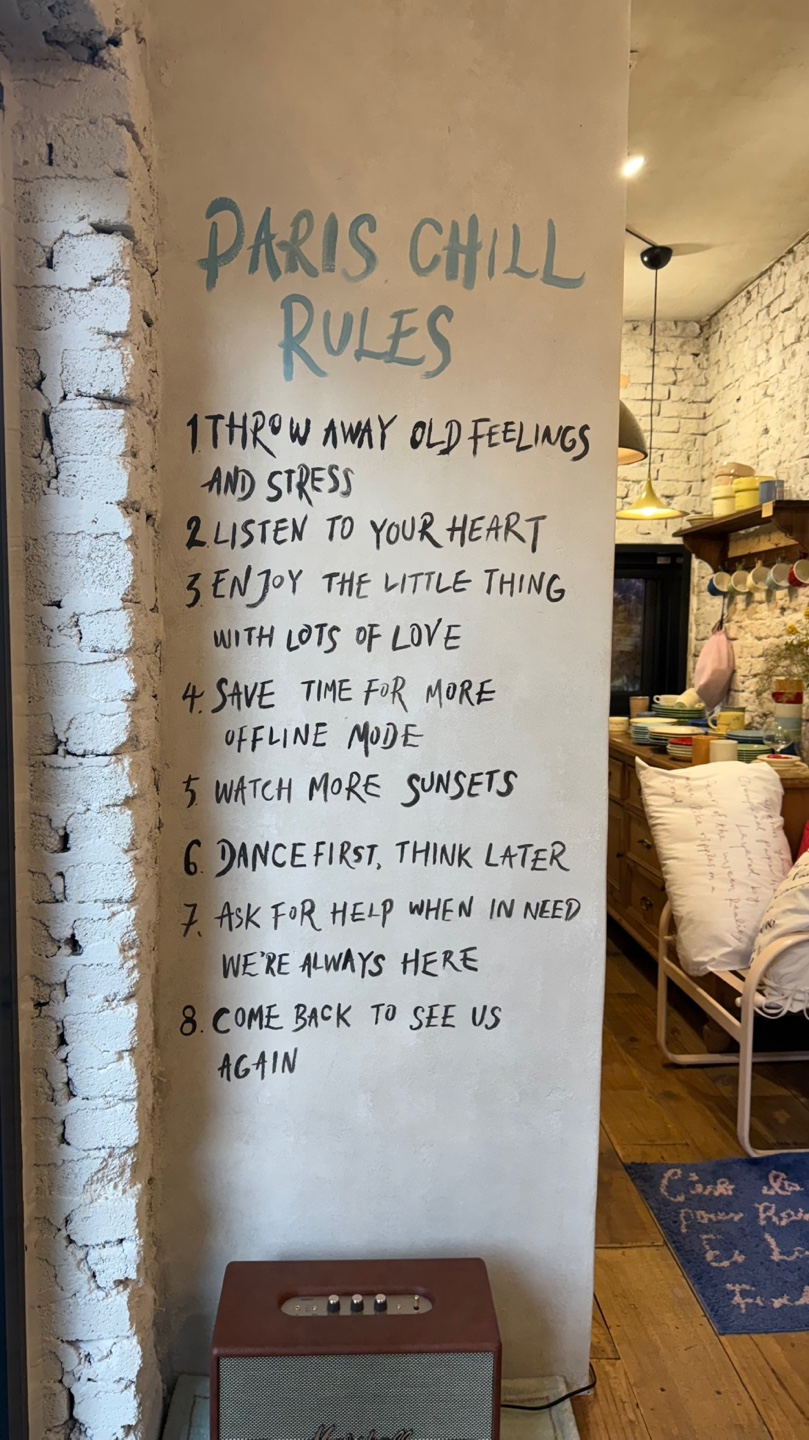 PARIS CHILL
RULES
1. THROW AWAY OLD FEELINGS
AND STRESS
2. LISTEN TO YOUR HEART
3. ENJOY THE LITTLE THING
WITH LOTS OF LOVE
4. SAVE TIME FOR MORE
OFFLINE MODE
5. WATCH MORE SUNSETS
6. DANCE FIRST, THINK LATER
7. ASK FOR HELP WHEN IN NEED
WE'RE ALWAYS HERE
8. COME BACK TO SEE US
AGAIN
Marshall